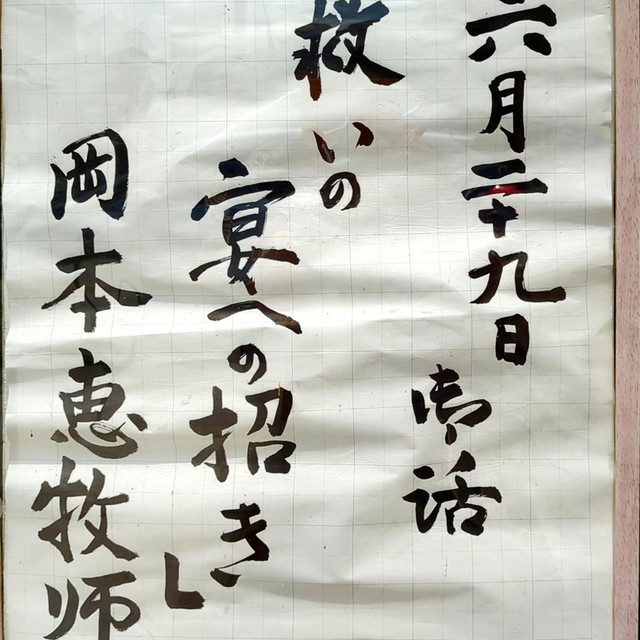 六月二十九日
御話
救いの
宴への招き」
岡本恵牧师